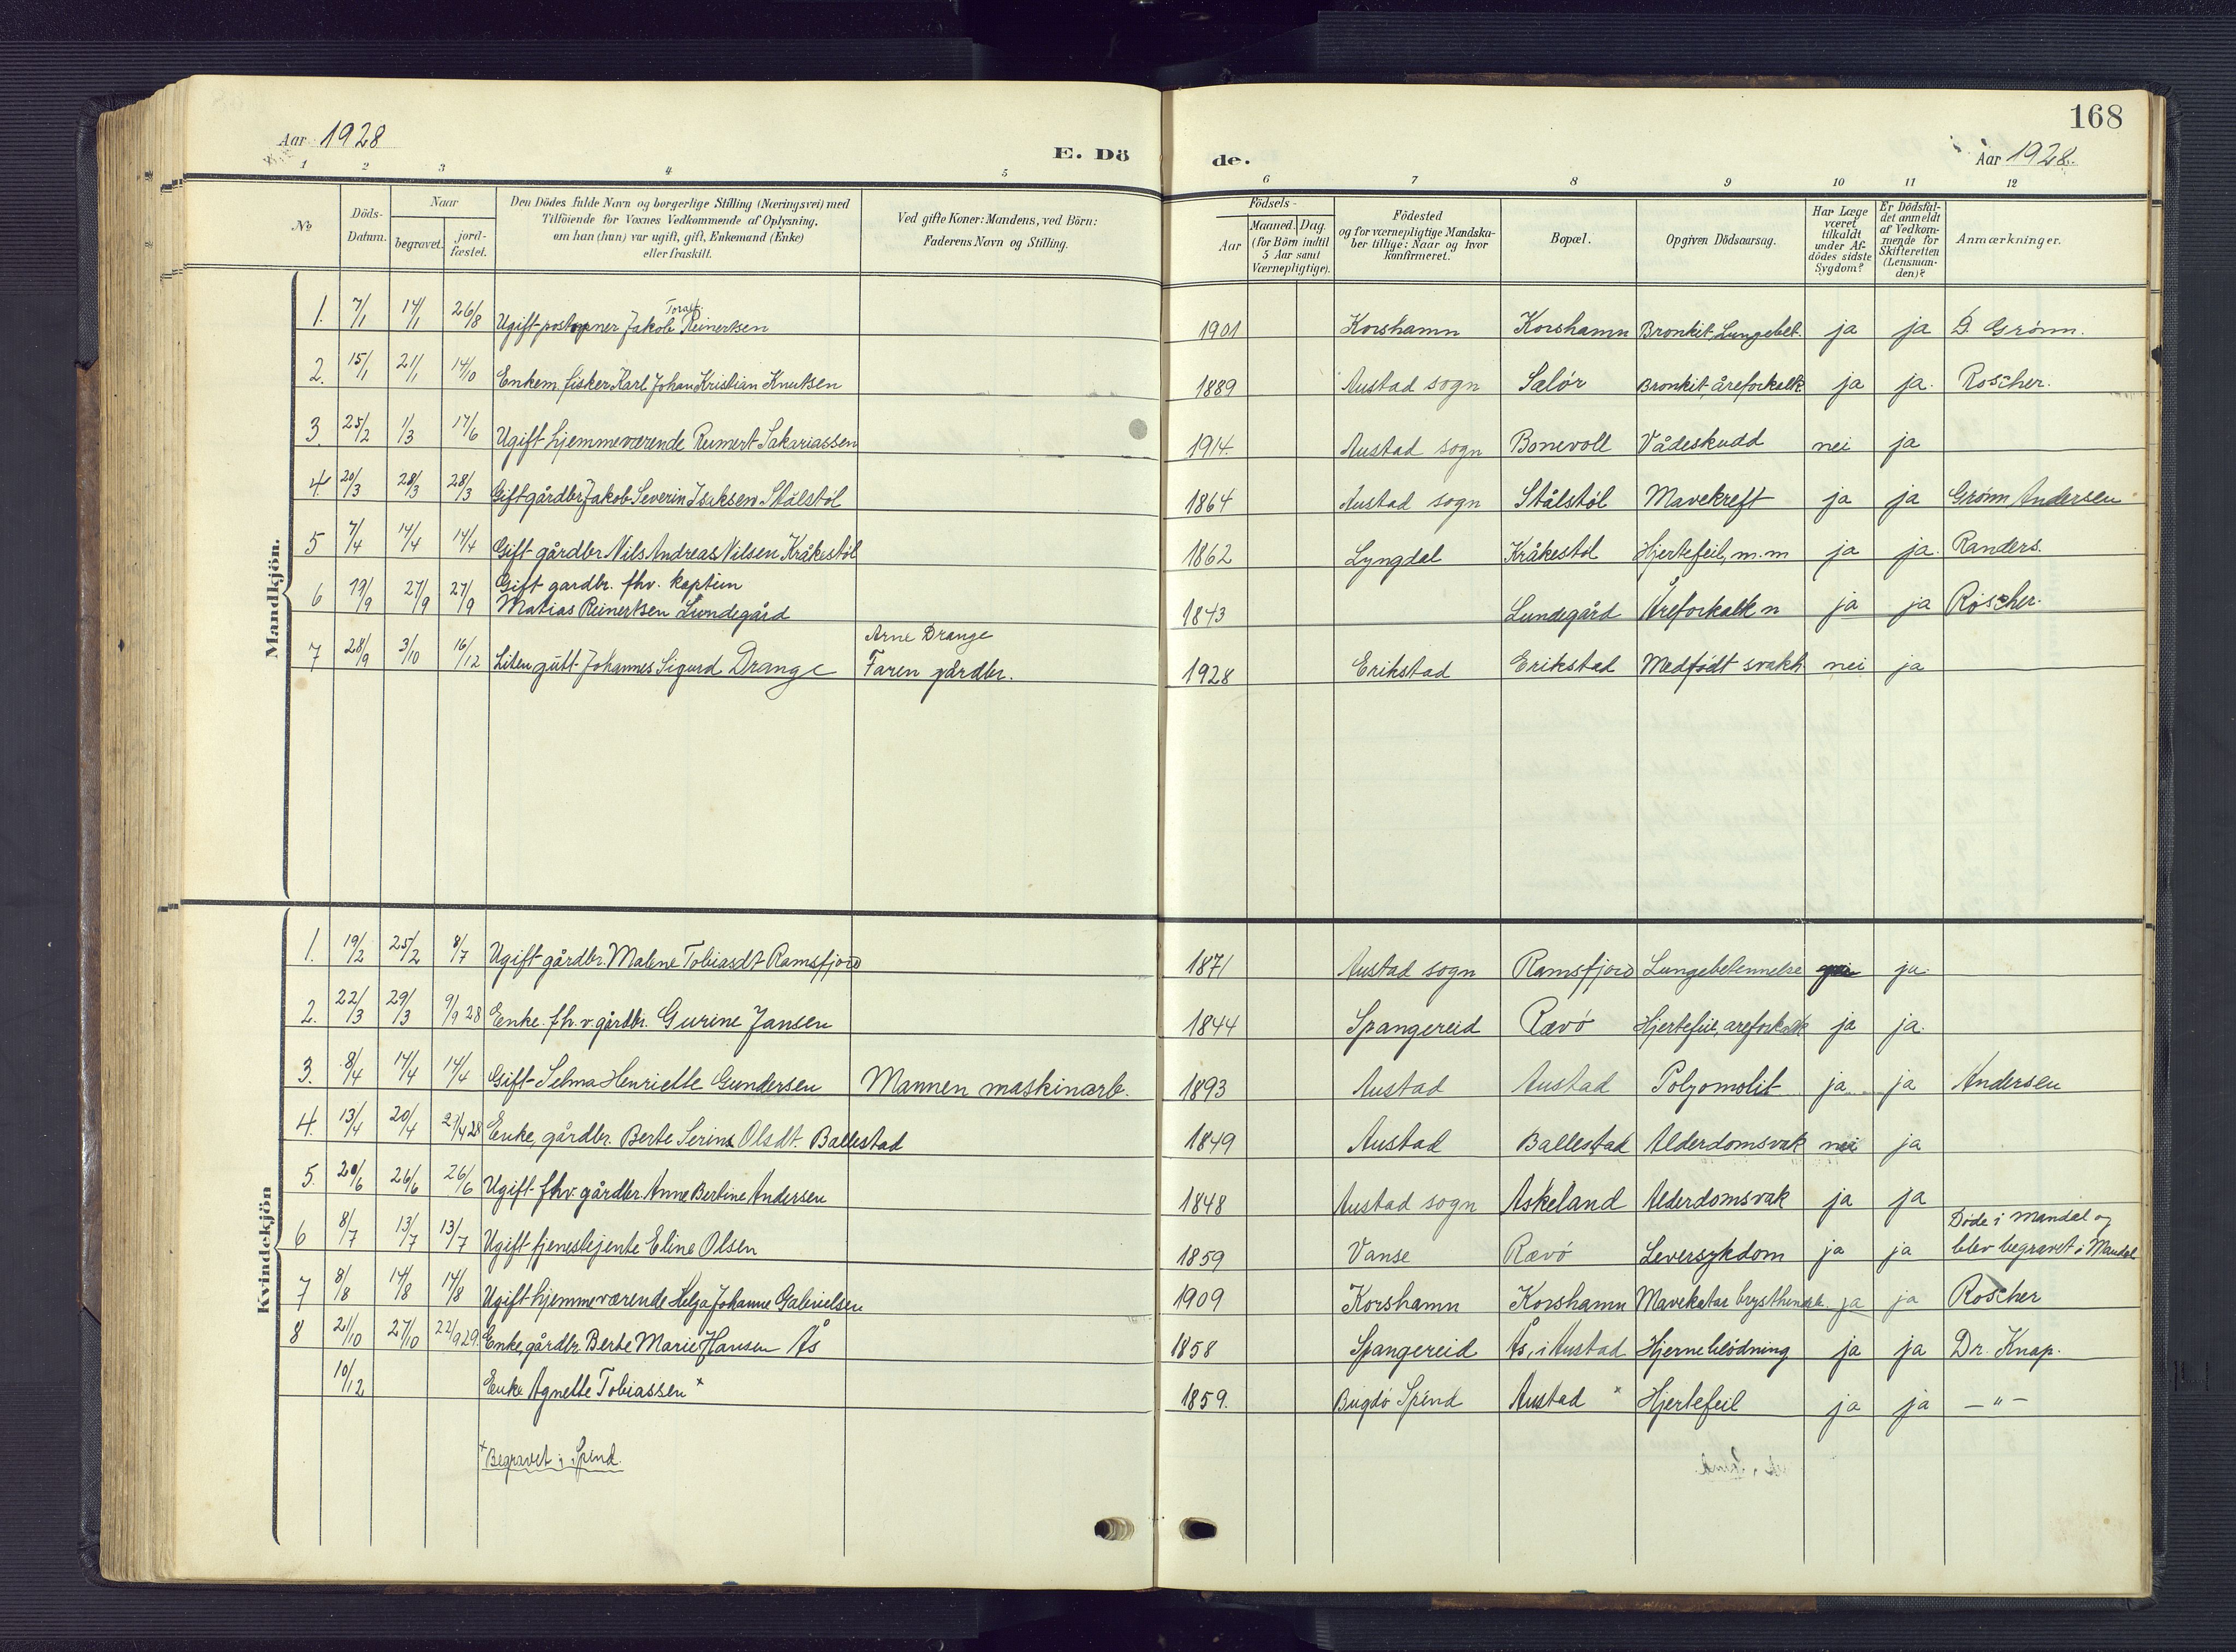 168
Aar 1928
E. Dö
de.
Aar 1928.
1 2 3 4 5 6 7 8 9 10 11 12
No
Döds-Datum.
Naar
begravet.
jord-fæstet.
Den Dödes fulde Navn og borgerlige Stilling (Næringsvei) med
Tilföiende for Voxnes Vedkommende af Oplysning,
om han (hun) var ugift, gift, Enkemand (Enke)
eller fraskilt.
Ved gifte Koner: Mandens, ved Börn:
Faderens Navn og Stilling.
Födsels-
Aar
Maaned. Dag.
(for Börn indtil
5 Aar samt
Værnepligtige).
Födested
og for værnepligtige Mandska-
ber tillige: Naar og hvor
konfirmeret.
Bopæl.
Opgiven Dödsaarsag.
Har Læge
været
tilkaldt
under Af-
dödes sidste
Sygdom?
Er Dödsfal-
det anmeldt
af Vedkom-
mende for
Skifteretten
(Lensman-
den)?
Anmærkninger.
Mandkjön.
1. 7/1 14/1 26/8 Ugift postopner Jakob Toralf Reinertsen 1901 Korshamn Korshamn Bronkit, Lungebet. ja ja D. Grönn.
2. 15/1 21/1 14/10 Enkem. fisker Karl Johan Kristian Knutsen 1889 Austad sogn Salör Bronkit, åreforkalk ja ja. Roscher.
3. 25/2 1/3 17/6 Ugift hjemmeværende Reinert Sakariassen 1914. Austad sogn Bonevoll Vådeskudd nei ja
4. 20/3 28/3 28/3 Gift gårdbr. Jakob Severin Isaksen Stålstöl 1864 Austad sogn Stålstöl Mavekreft ja ja Grönn Andersen
5 7/4 14/4 14/4 Gift gårdbr Nils Andreas Nilsen Kråkestöl 1862 Lyngdal Kråkestöl Hjertefeil, m.m ja ja. Randers.
6 19/9 27/9 27/9 Gift gardbr. fhv. kaptein
Matias Reinertsen Lundegård 1843 Lundegård Åreforkalkn ja ja Roscher.
7 28/9 3/10 16/12 Liten gutt Johannes Sigurd Drange Arne Drange
Faren gårdbr. 1928 Erikstad Erikstad Medfödt svakh. nei ja
Kvindekjön
1. 19/2 25/2 8/7 Ugift gårdbr. Malene Tobiasdt Ramsfjord 1871 Austad sogn Ramsfjord Lungebetennelse ja.
2. 22/3 29/3 9/9 28 Enke fh.v. gårdbr. Gurine Jansen 1844 Spangereid Rævö Hjertefeil, areforkalk ja ja.
3. 8/4 14/4 14/4 Gift Selma Henriette Gundersen Mannen maskinarb. 1893 Austad Austad Polyomolit ja ja Andersen
4. 13/4 20/4 29/4 28 Enke, gårdbr. Berte Serine Olsdt. Ballestad 1849 Austad Ballestad Alderdomsvak nei ja
5. 20/6 26/6 26/6 Ugift fhv gårdbr. Anne Bertine Andersen 1848 Austad sogn Askeland Alderdomsvak ja ja
6 8/7 13/7 13/7 Ugift tjenestejente Eline Olsen 1859 Vanse Rævö Leversykdom ja ja Döde i Mandal og
blev begravet i Mandal
7 8/8 14/8 14/8 Ugift hjemmeværende Helga Johanne Gabrielsen 1909 Korshamn Korshamn Mavekatar ja ja Roscher
8 21/10 27/10 22/9 29. Enke, gårdbr Berte Marie Hansen Ås 1858 Spangereid Ås, i Austad Hjerneblödning ja ja Dr. Knap.
10/12 Enke Agnette Tobiassen × 1859. Bugdö Spind Austad × Hjertefeil ja ja — " —
× Begravet i Spind.